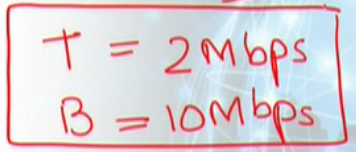 T = 2Mbps
B = 10Mbps